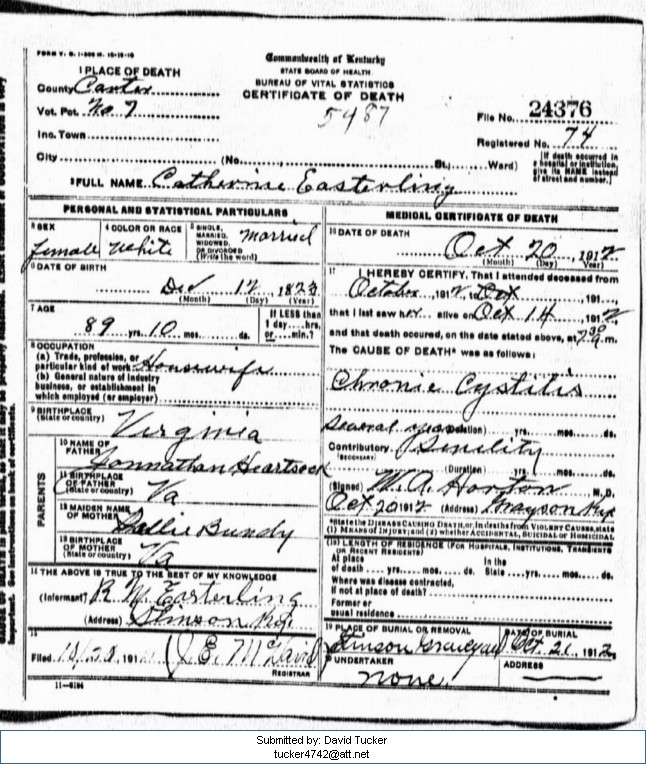 FORM V. S. 1-
Commonwealth of Kentucky
STATE BOARD OF HEALTH
BUREAU OF VITAL STATISTICS
CERTIFICATE OF DEATH
5487
1 PLACE OF DEATH
County Carter
Vot. Pct. No. 7
Inc. Town
City (No. St., Ward)
File No. 24376
Registered No. 74
(If death occurred in a hospital or institution, give its NAME instead of street and number.)
2 FULL NAME Catherine Easterling
PERSONAL AND STATISTICAL PARTICULARS
3 SEX
female
4 COLOR OR RACE
White
5 SINGLE, MARRIED, WIDOWED, OR DIVORCED (Write the word)
Married
6 DATE OF BIRTH
Dec 12, 1823
(Month) (Day) (Year)
7 AGE
89 yrs. 10 mos. ds.
If LESS than 1 day....hrs. or....min.?
8 OCCUPATION
(a) Trade, profession, or particular kind of work Housewife
(b) General nature of industry business, or establishment in which employed (or employer)
9 BIRTHPLACE
(State or country) Virginia
PARENTS
10 NAME OF FATHER
Jonnathan Heartsock
11 BIRTHPLACE OF FATHER
(State or country) Va
12 MAIDEN NAME OF MOTHER
Sallie Bundy
13 BIRTHPLACE OF MOTHER
(State or country) Va
14 THE ABOVE IS TRUE TO THE BEST OF MY KNOWLEDGE
(Informant) R. M. Easterling
(Address) Stinson Ky.
15
Filed 10/28 191 J. E. McDavid
REGISTRAR
11-5184
MEDICAL CERTIFICATE OF DEATH
16 DATE OF DEATH
Oct 20, 1912
(Month) (Day) (Year)
17 I HEREBY CERTIFY, That I attended deceased from
October, 1912, to Oct 191
that I last saw her alive on Oct 14, 1912
and that death occured, on the date stated above, at 7 30 m.
The CAUSE OF DEATH* was as follows:
Chronic Cystitis
Several years (Duration) yrs. mos. ds.
Contributory Senility
(SECONDARY)
(Duration) yrs. mos. ds.
(Signed) W. A. Horton M. D.
Oct 20 1912 (Address) Grayson Ky
*State the DISEASE CAUSING DEATH, or, in deaths from VIOLENT CAUSES, state (1) MEANS OF INJURY; and (2) whether ACCIDENTAL, SUICIDAL or HOMICIDAL
18 LENGTH OF RESIDENCE (FOR HOSPITALS, INSTITUTIONS, TRANSIENTS OR RECENT RESIDENTS)
At place of death yrs. mos. ds. In the State yrs. mos. ds.
Where was disease contracted, if not at place of death?
Former or usual residence
19 PLACE OF BURIAL OR REMOVAL
Stinson Graveyard
DATE OF BURIAL
Oct. 21, 1912
20 UNDERTAKER
none
ADDRESS
Submitted by: David Tucker
tucker4742@att.net